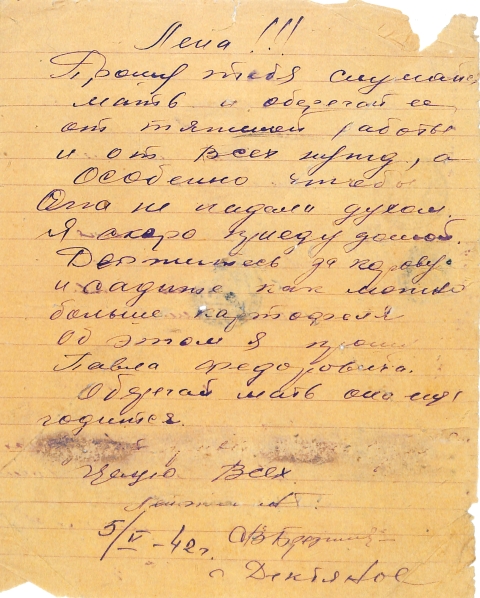 Лена!!!
Прошу тебя слушайся
мать и оберегай ее
от тяжелой работы
и от всех нужд, а
особенно чтобы
Она не падала духом.
Я скоро приеду домой.
Держитесь за корову
и садите как можно
больше картофеля
Об этом я прошу
Павла Федоровича.
Оберегай мать она еще
годится.
Целую Всех
5/V-42 г.